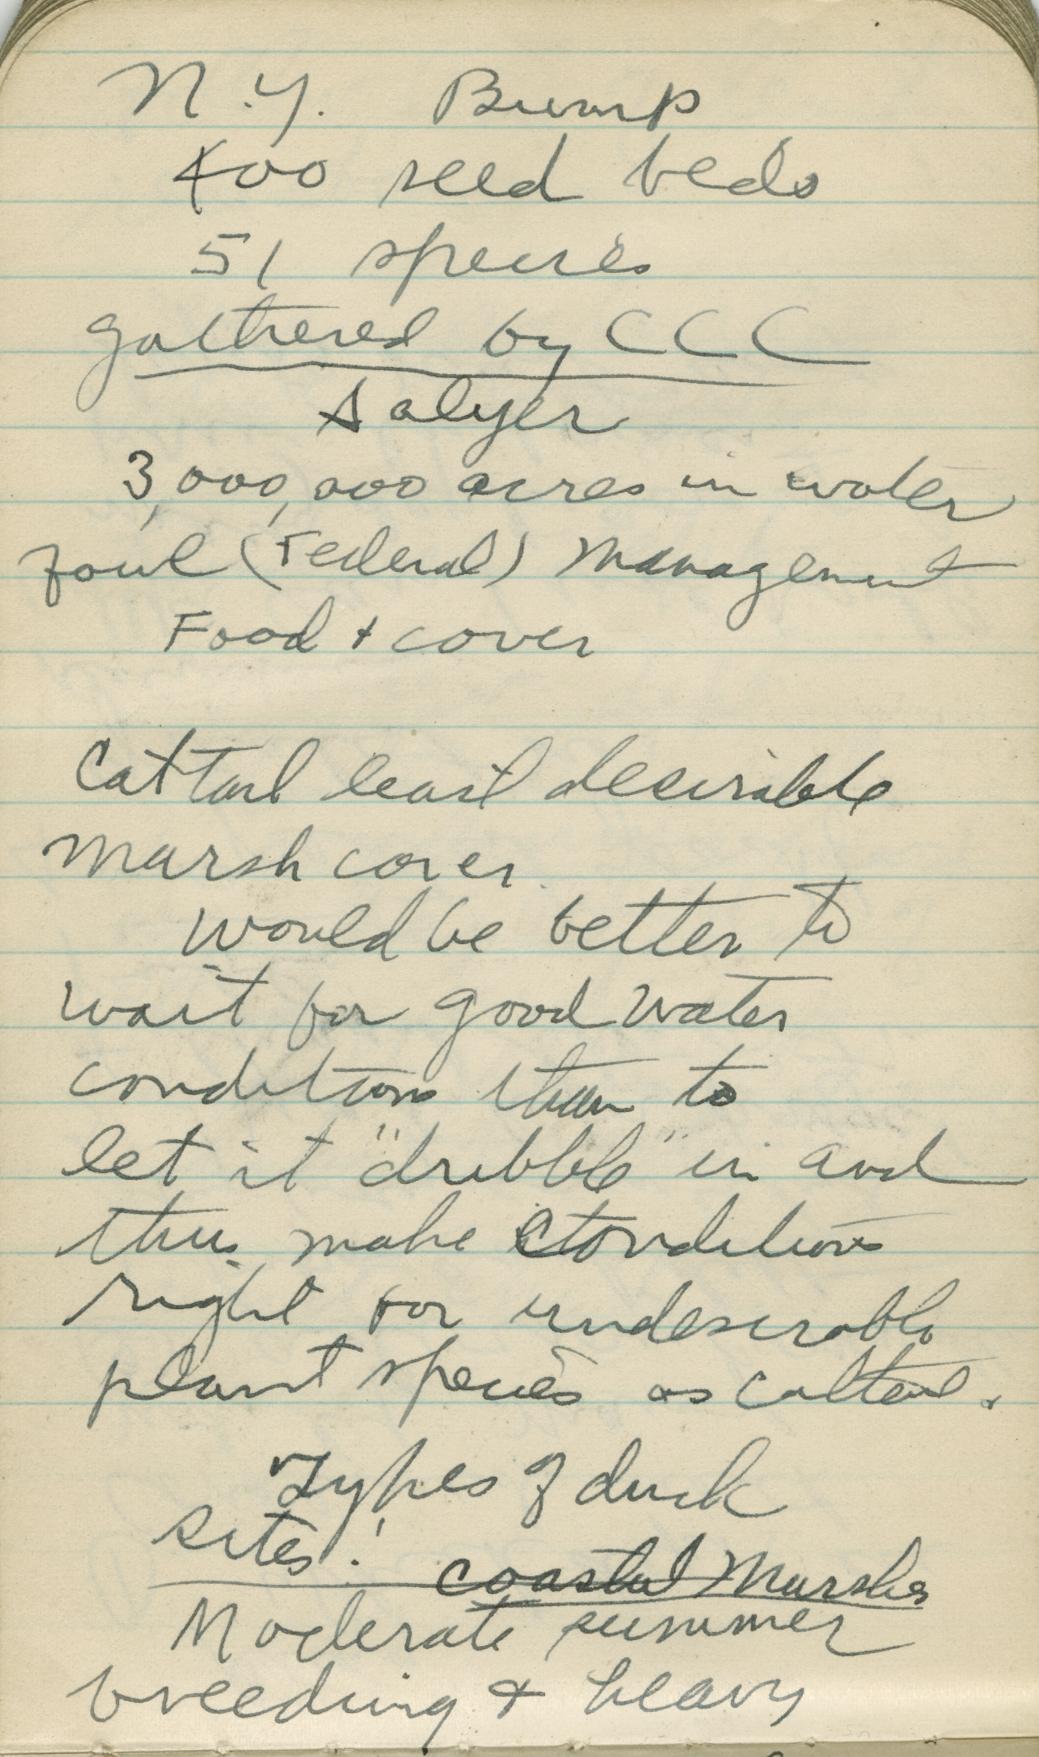 N.Y. Bump
400 seed beds
51 species
gathered by CCC
Salyer
3,000,000 acres in water
fowl (Federal) Management
Food + cover
Cattail least desirable
marsh cover.
would be better to
wait for good water
conditions than to
let it "dribble" in and
thus make conditions
right for undesirable
plant species as cattail.
Types of duck
sites: coastal Marshes
Moderate summer
breeding & heavy